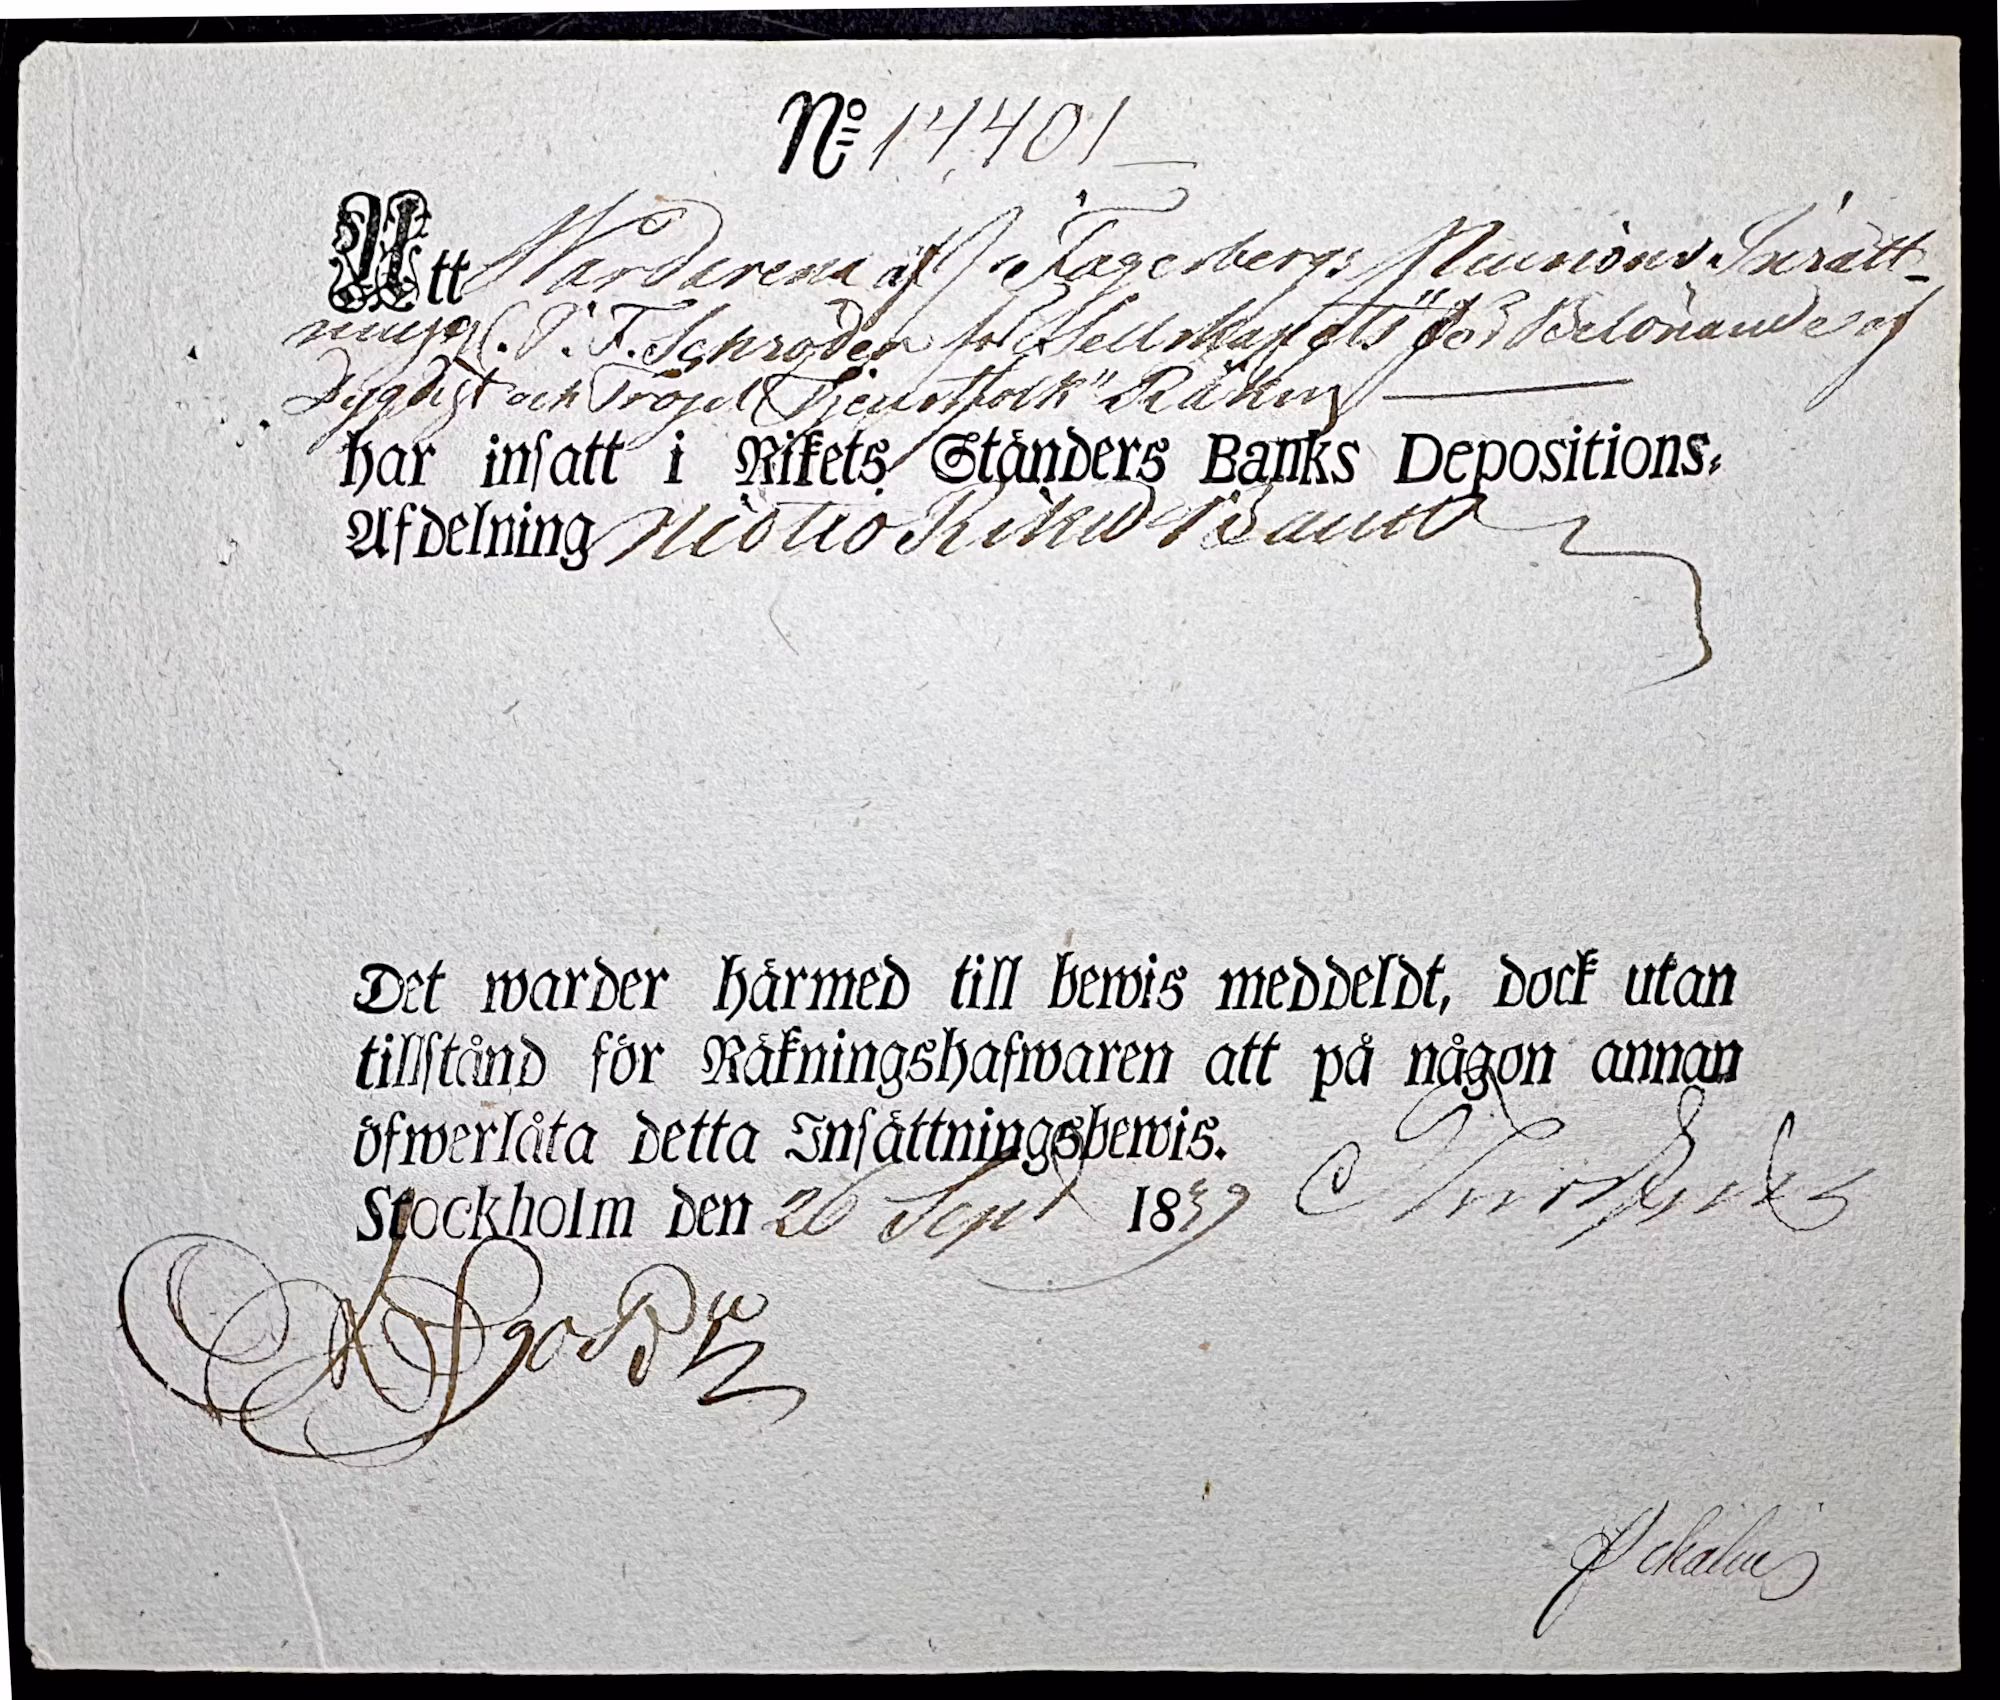 No 14401
Att Wärderena af Fagerbergs Pensions Inrätt-
ning C. F. Schröder för Sellskapets "för Belönande af
Dygdigt och Troget Tjenstfolk" Räkng
har insatt i Rikets Ständers Banks Depositions-
Afdelning Nio Riksd Banco
Det warder härmed till bewis meddeldt, dock utan
tillstånd för Räkningshafwaren att på någon annan
öfwerlåta detta Insättningsbewis.
Stockholm den 26 Sept 1839